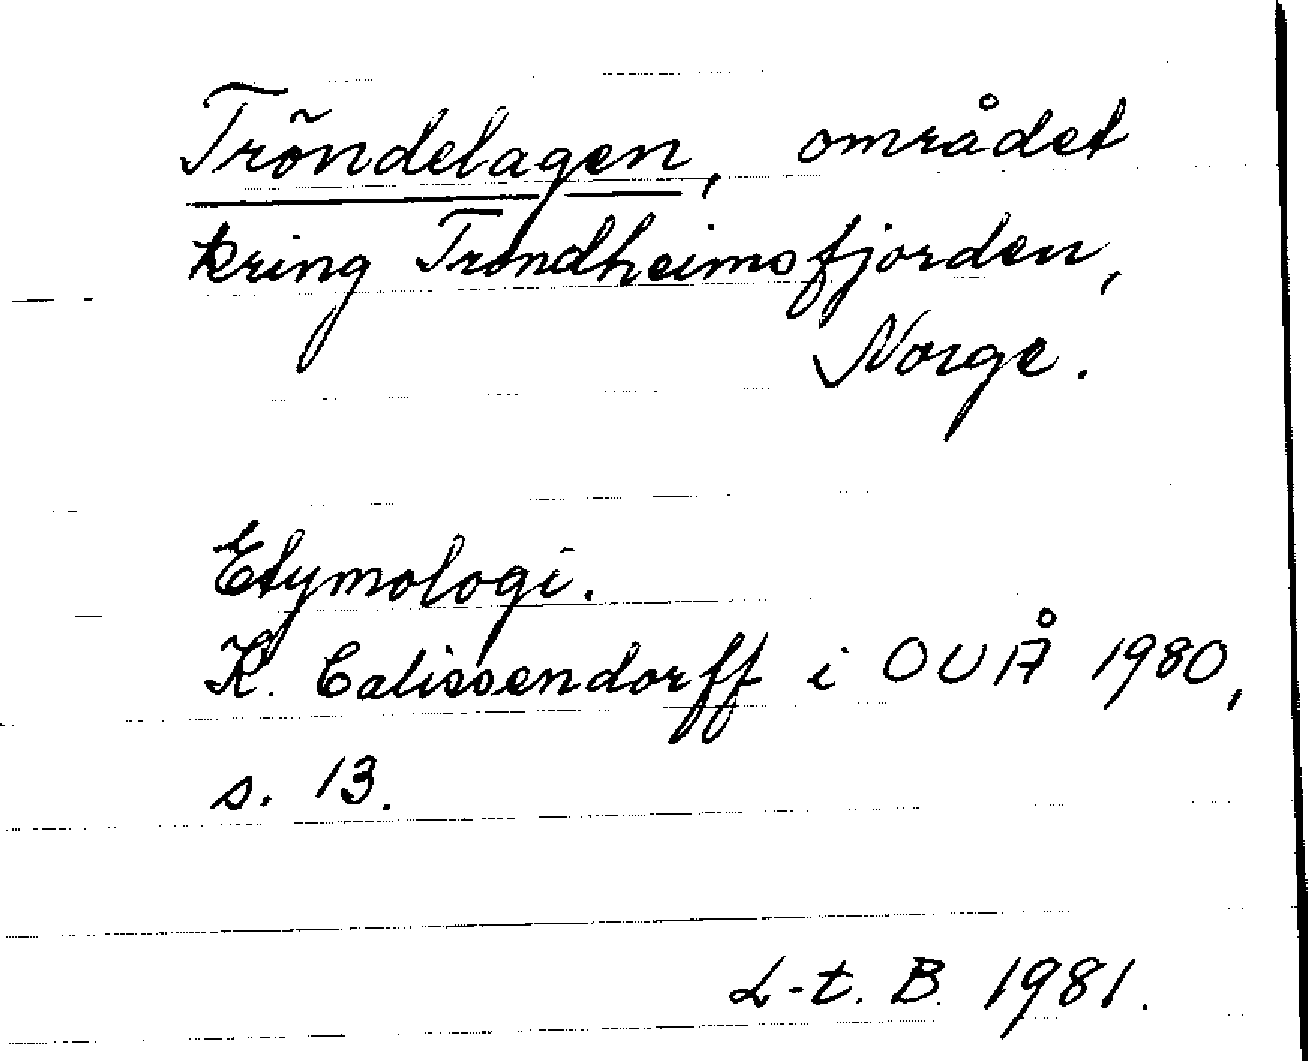 Tröndelagen, området
kring Trondheimsfjorden,
Norge.
Etymologi.
K. Calissendorff i OUÅ 1980,
s. 13.
L-t. B. 1981.